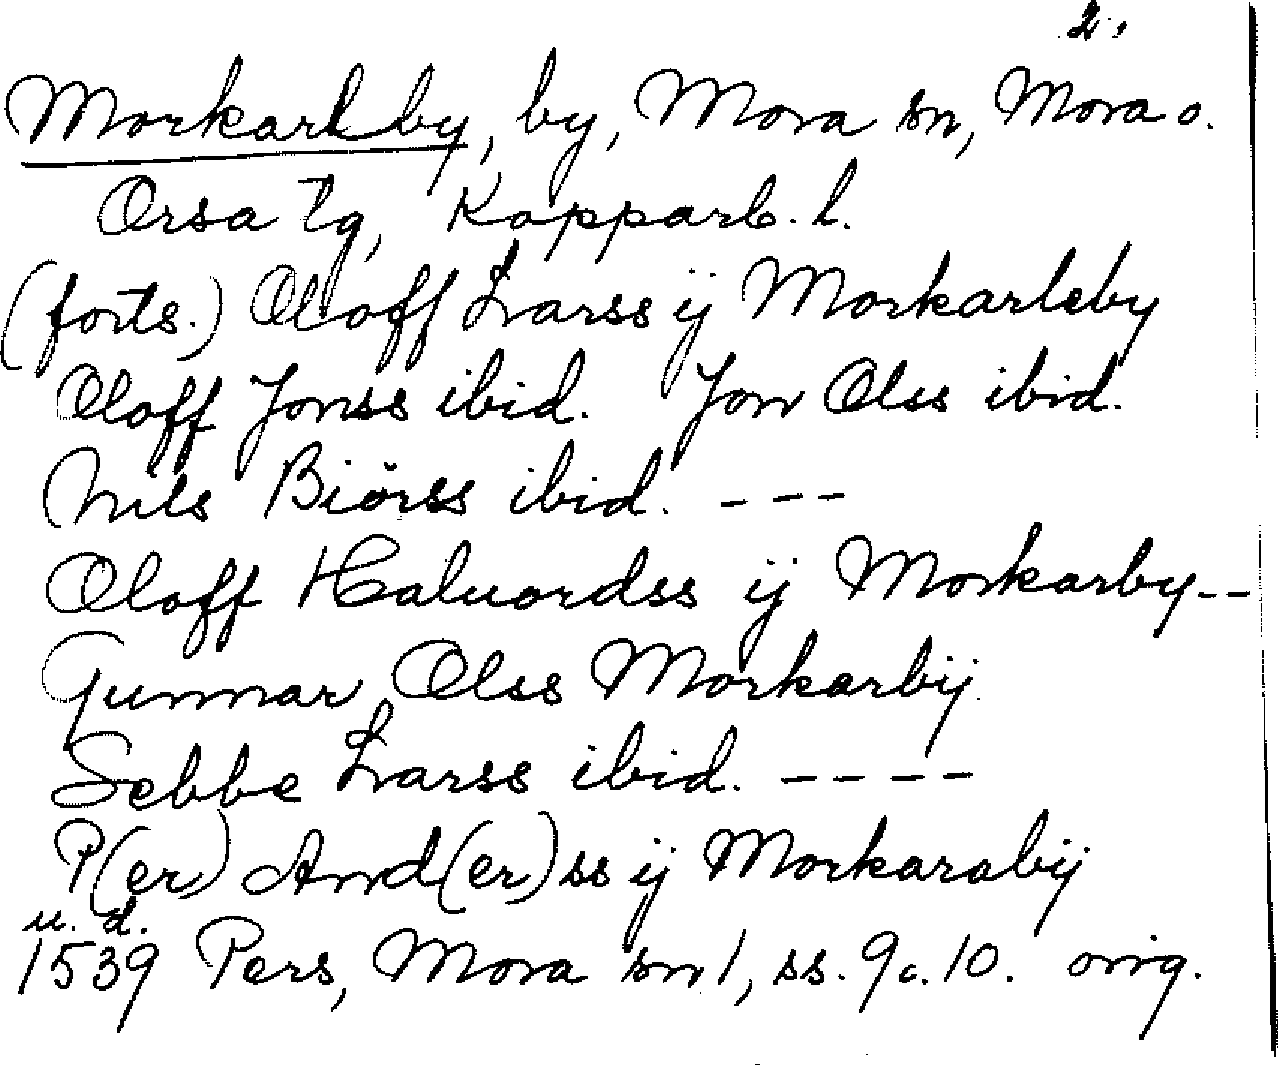 2.
Morkarlby, by, Mora sn, Mora o.
Orsa tg, Kopparb. l.
(forts.) Oloff Larss ij Morkarleby
Oloff Jonss ibid. Jon Olss ibid.
Nils Biörss ibid. ---
Oloff Haluordss ij Morkarby--
Gunnar Olss Morkarbij
Sebbe Larss ibid. ----
P(er) And(er)ss ij Morkarabij
u. d.
1539 Pers, Mora sn 1, ss. 9 o. 10. orig.